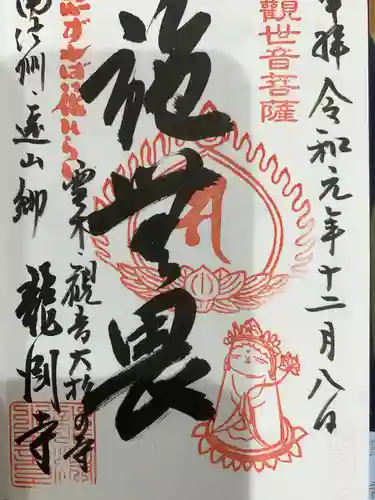 観世音菩薩
奉拝 令和元年十二月八日
施無畏
雲木・観音大杉の寺
南信州・遠山郷
龍淵寺